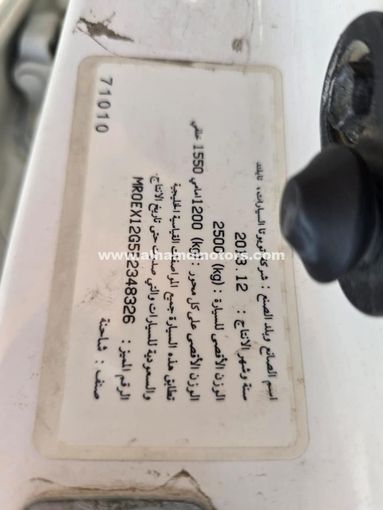 اسم الصانع وبلد الصنع : شركة تويوتا للسيارات ، تايلند
سنة وشهر الانتاج :
الوزن الأقصى للسيارة : (kg) 2500
الوزن الأقصى على كل محور : (kg) 1200 امامي 1550 خلفي
تطابق هذه السيارة جميع المواصفات القياسية الخليجية
والسعودية للسيارات والتي صدرت حتى تاريخ الانتاج.
الرقم المميز :
صنف : شاحنة
71010
www.alhamdmotors.com